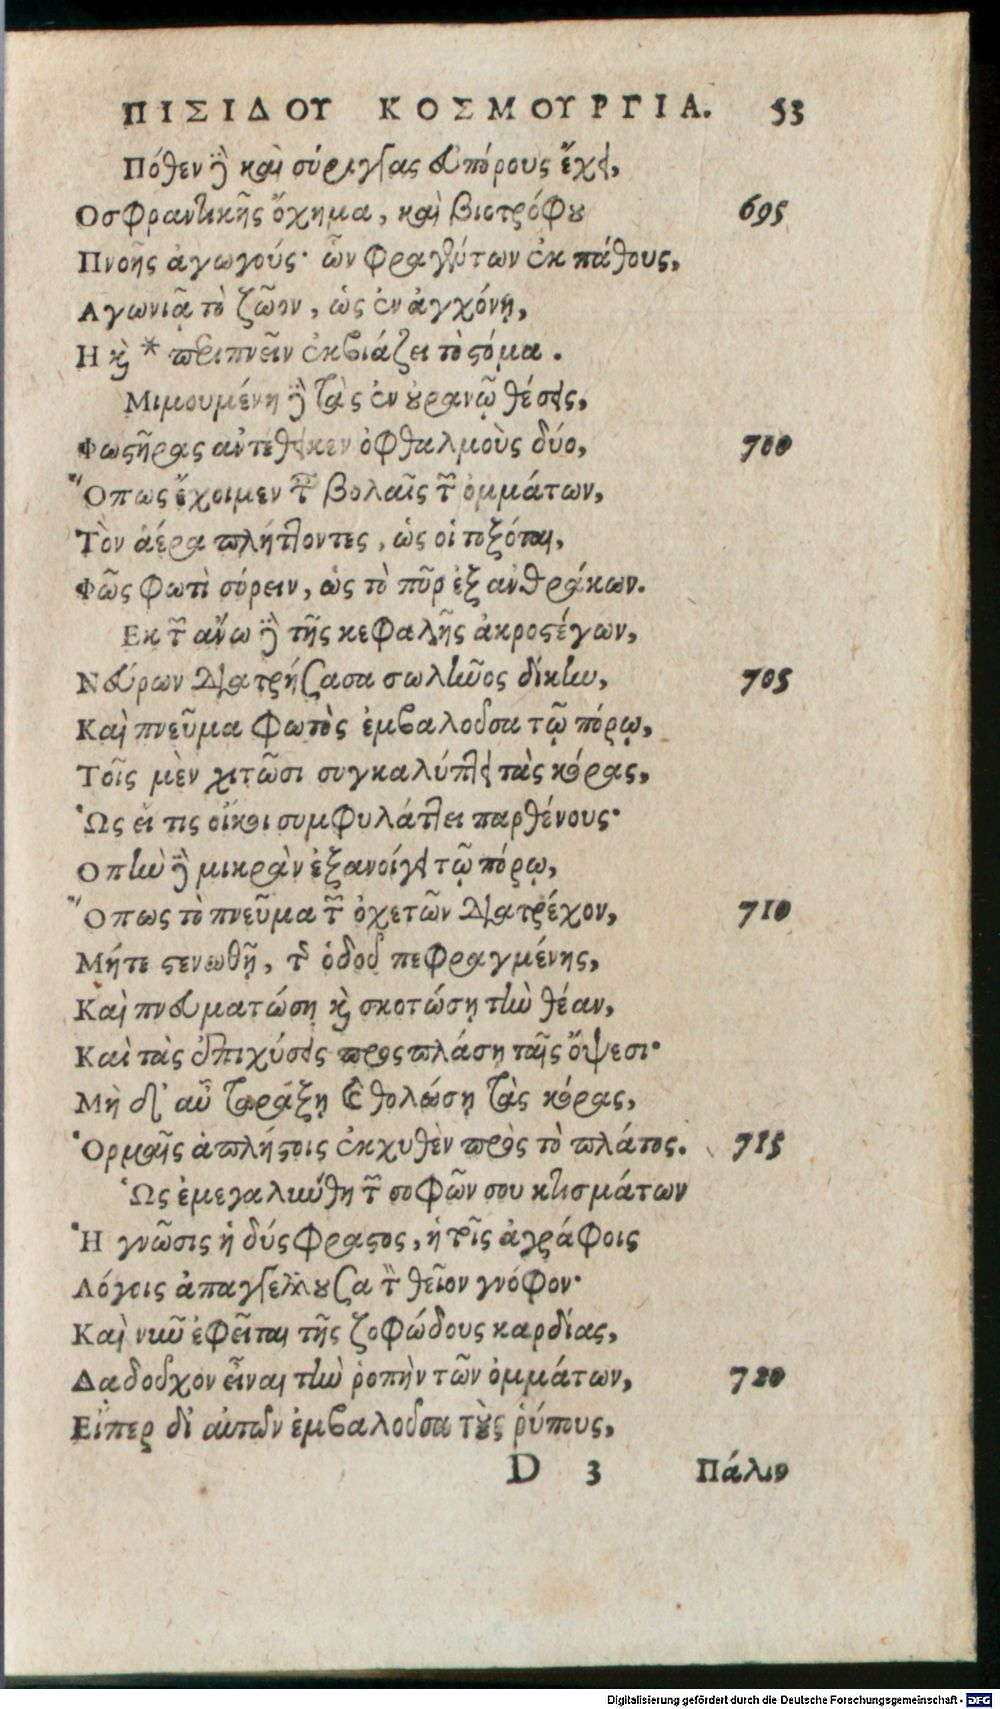 ΠΙΣΙΔΟΥ ΚΟΣΜΟΥΡΓΙΑ. 53
Πόθεν δὲ καὶ σύριγγας εὐπόρους ἔχει,
Οσφραντικῆς ὄχημα, καὶ βιοτρόφου 695
Πνοῆς ἀγωγούς· ὧν φραγέντων ἐκ πάθους,
Αγωνιᾷ τὸ ζῶον, ὡς ἐν ἀγχόνῃ,
Η καὶ * περιπνεῖν ἐκβιάζει τὸ στόμα.
Μιμουμένη δὲ τὰς ἐν οὐρανῷ θέσεις,
Φωστῆρας ἀντέθηκεν ὀφθαλμοὺς δύο, 700
Ὅπως ἔχοιμεν ταῖς βολαῖς τῶν ὀμμάτων,
Τὸν ἀέρα πλήττοντες, ὡς οἱ τοξόται,
Φῶς φωτὶ σύρειν, ὡς τὸ πῦρ ἐξ ἀνθράκων.
Εκ τῶν ἄνω δὲ τῆς κεφαλῆς ἀκροστέγων,
Νεύρων διατρήσασα σωλῆνος δίκην, 705
Καὶ πνεῦμα φωτὸς ἐμβαλοῦσα τῷ πόρῳ,
Τοῖς μὲν χιτῶσι συγκαλύπτει τὰς κόρας,
Ὡς εἴ τις οἴκοι συμφυλάττει παρθένους·
Οπὴν δὲ μικρὰν ἐξανοίγει τῷ πόρῳ,
Ὅπως τὸ πνεῦμα τῶν ὀχετῶν διατρέχον, 710
Μήτε στενωθῇ, τῆς ὁδοῦ πεφραγμένης,
Καὶ πνευματώσῃ καὶ σκοτώσῃ τὴν θέαν,
Καὶ τὰς ἐπιχύσεις προσπλάσῃ ταῖς ὄψεσι·
Μὴ δ' αὖ ταράξῃ καὶ θολώσῃ τὰς κόρας,
Ὁρμαῖς ἀπλήστοις ἐκχυθὲν πρὸς τὸ πλάτος. 715
Ὡς ἐμεγαλύνθη τῶν σοφῶν σου κτισμάτων
Ἡ γνῶσις ἡ δύσφραστος, ἡ τοῖς ἀγράφοις
Λόγοις ἀπαγγέλλουσα τὸν θεῖον γνόφον·
Καὶ νῦν ἐφεῖται τῆς ζοφώδους καρδίας,
Δᾳδοῦχον εἶναι τὴν ῥοπὴν τῶν ὀμμάτων, 720
Εἴπερ δι' αὐτῶν ἐμβαλοῦσα τοὺς ῥύπους,
D 3 Πάλιν
Digitalisierung gefördert durch die Deutsche Forschungsgemeinschaft - DFG